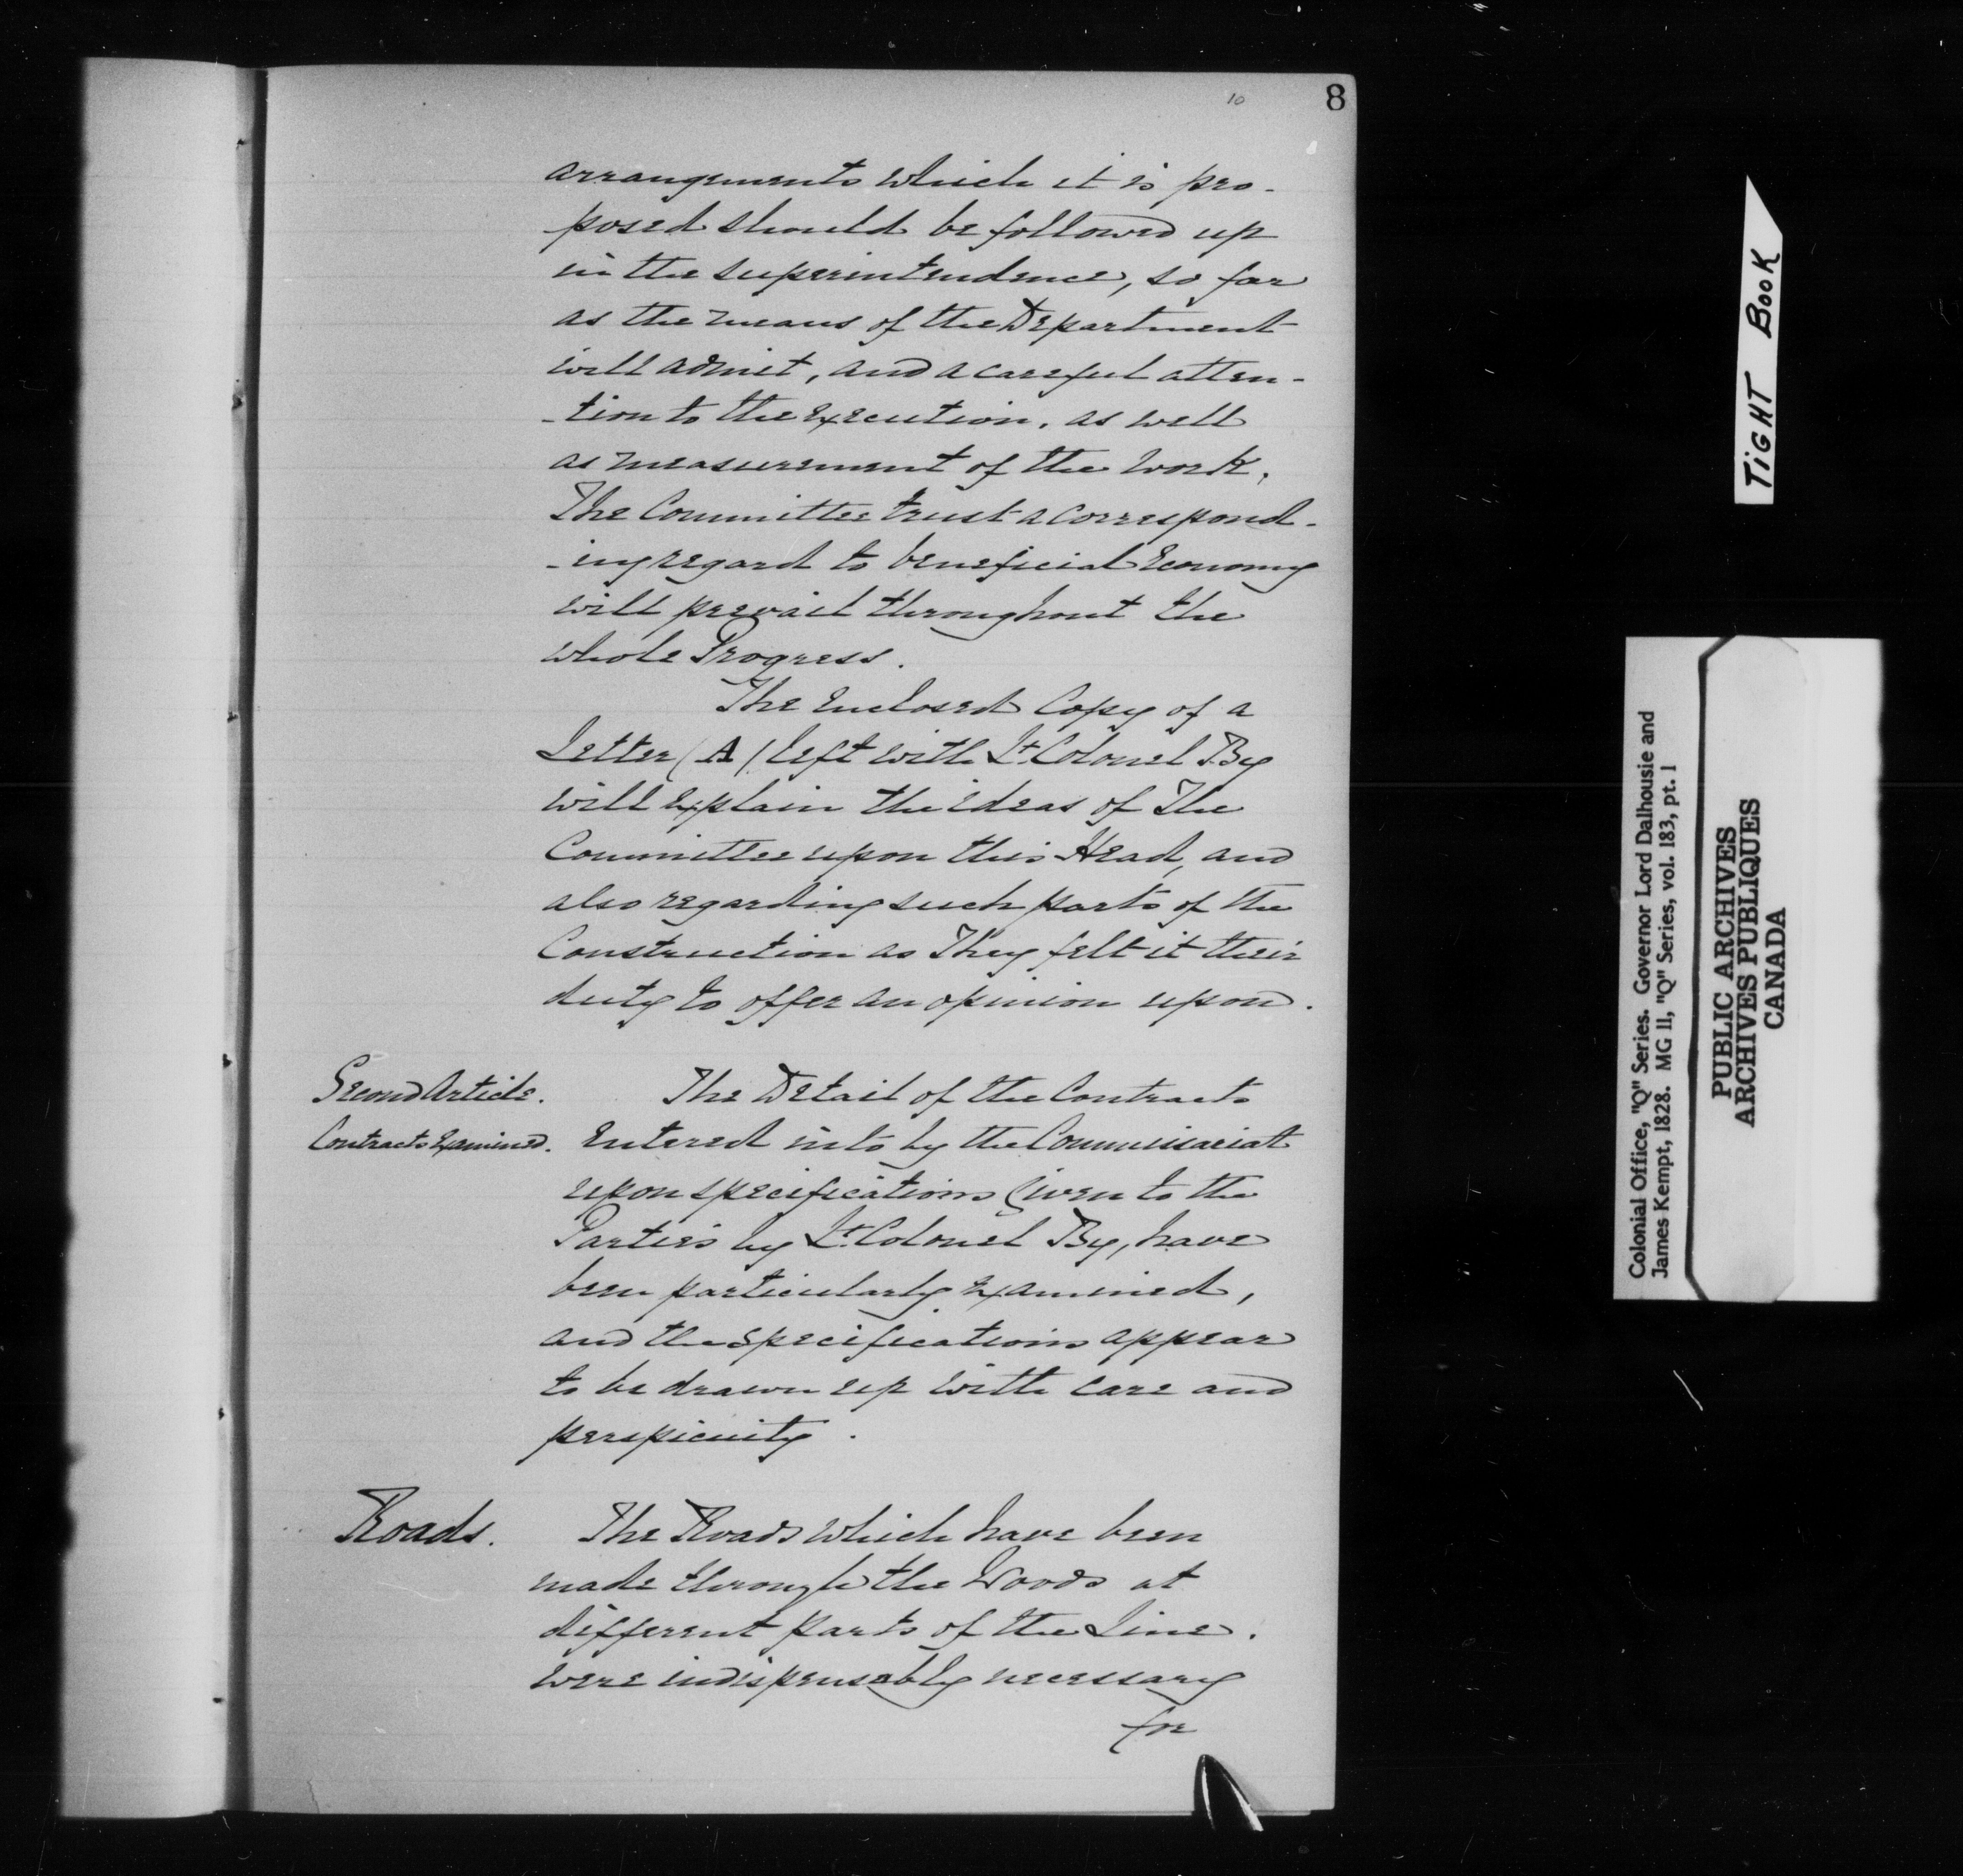 10
8
arrangements which it is pro-
posed should be followed up
in the superintendence, so far
as the means of the Department
will admit, and a careful atten-
-tion to the Execution, as well
as measurement of the work,
The Committee trust a correspond-
-ing regard to beneficial Economy
will prevail throughout the
whole Progress.
The Enclosed Copy of a
Letter (A) left with Lt. Colonel By
will Explain the ideas of The
Committee upon this Head, and
also regarding such parts of the
Construction as They felt it their
duty to offer an opinion upon.
Second Article.
Contracts Examined.
The Detail of the Contracts
Entered into by the Commissariat
upon specifications Given to the
Parties by Lt. Colonel By, have
been particularly Examined,
and the Specifications appear
to be drawn up with care and
perspicuity.
Roads.
The Roads which have been
made through the Woods at
different parts of the Line.
were indispensably necessary
for
TIGHT BOOK
Colonial Office, "Q" Series. Governor Lord Dalhousie and
James Kempt, 1828. MG 11, "Q" Series, vol. 183, pt. 1
PUBLIC ARCHIVES
ARCHIVES PUBLIQUES
CANADA